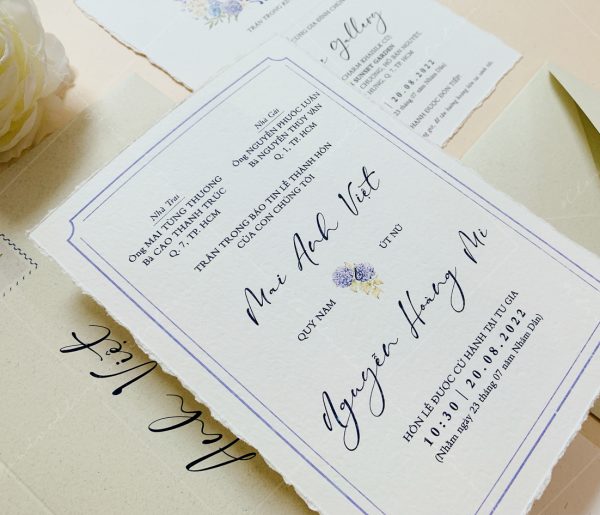 Nhà Trai
Ông MAI TÙNG THƯƠNG
Bà CAO THANH TRÚC
Q. 7, TP. HCM
Nhà Gái
Ông NGUYỄN PHƯỚC LUẬN
Bà NGUYỄN THÚY VÂN
Q. 1, TP. HCM
TRÂN TRỌNG BÁO TIN LỄ THÀNH HÔN
CỦA CON CHÚNG TÔI
Mai Anh Việt
QUÝ NAM
ÚT NỮ
Nguyễn Hoàng Mi
HÔN LỄ ĐƯỢC CỬ HÀNH TẠI TƯ GIA
10:30 | 20.08.2022
(Nhằm ngày 23 tháng 07 năm Nhâm Dần)
TRÂN TRỌNG
gallery
SUNSET GARDEN
20.08.2022
23 tháng 07 năm Nhâm Dần)
HẠNH ĐƯỢC ĐÓN TIẾP
Anh Việt